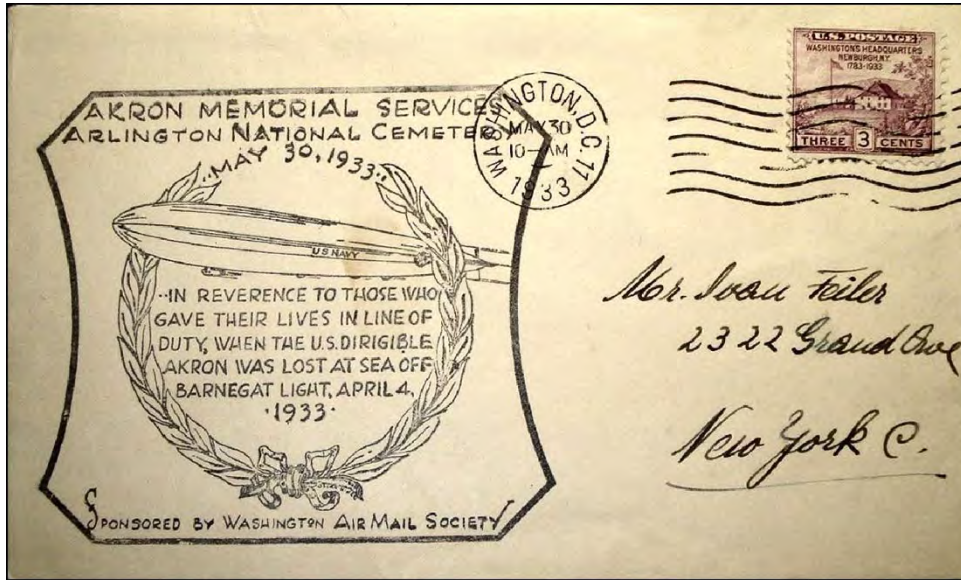 AKRON MEMORIAL SERVICE
ARLINGTON NATIONAL CEMETERY
··MAY 30, 1933··
U.S. NAVY
··IN REVERENCE TO THOSE WHO
GAVE THEIR LIVES IN LINE OF
DUTY, WHEN THE U.S. DIRIGIBLE
AKRON WAS LOST AT SEA OFF
BARNEGAT LIGHT, APRIL 4,
·1933·
SPONSORED BY WASHINGTON AIR MAIL SOCIETY
WASHINGTON, D.C. 11
MAY 30
10–AM
1933
U.S. POSTAGE
WASHINGTON'S HEADQUARTERS
NEWBURGH, N.Y.
1783-1933
THREE 3 CENTS
Mr. Ivan Feiler
2322 Grand Ave
New York C.